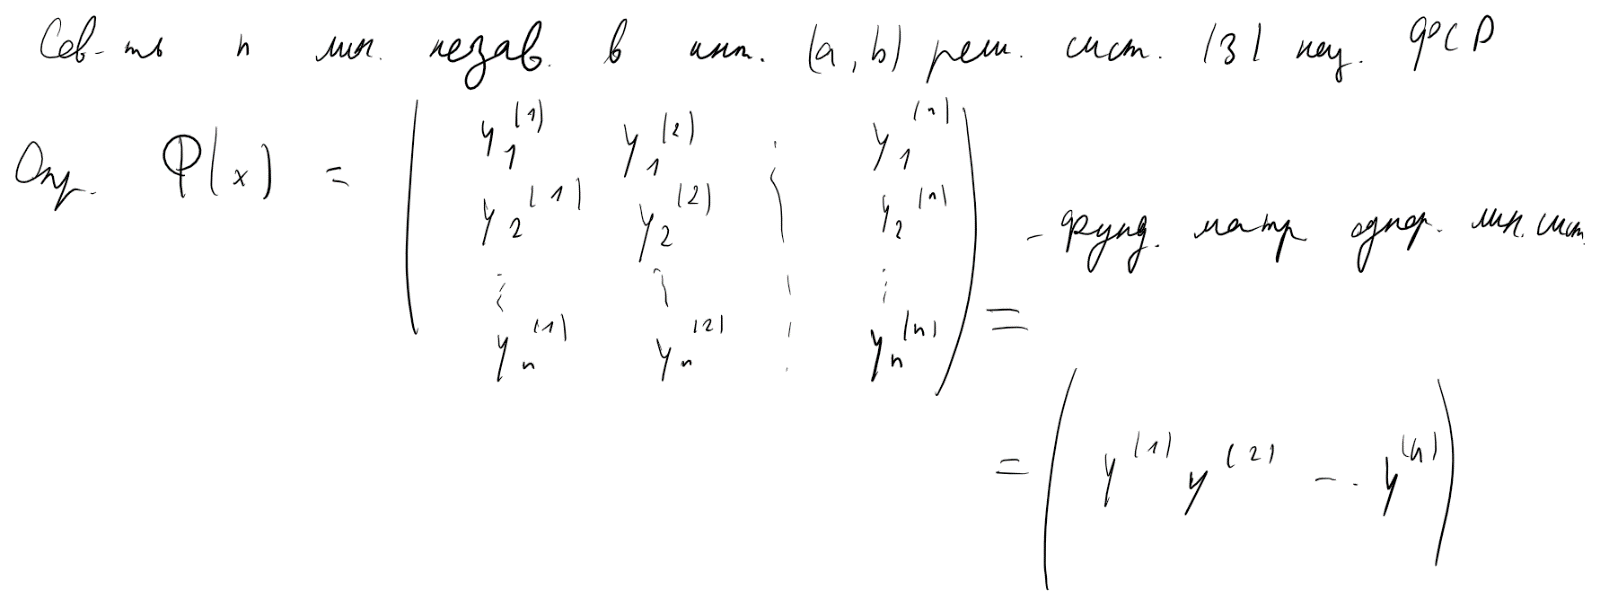 Сов-ть n лин. незав. в инт. (a, b) реш. сист. (3) наз. ФСР
Опр. Φ(x) = ( y₁⁽¹⁾ y₁⁽²⁾ ⋯ y₁⁽ⁿ⁾
y₂⁽¹⁾ y₂⁽²⁾ ⋯ y₂⁽ⁿ⁾
⋮ ⋮ ⋮ ⋮
yₙ⁽¹⁾ yₙ⁽²⁾ ⋯ yₙ⁽ⁿ⁾ ) - Фунд. матр. однор. лин. сист. =
= ( y⁽¹⁾ y⁽²⁾ ... y⁽ⁿ⁾ )